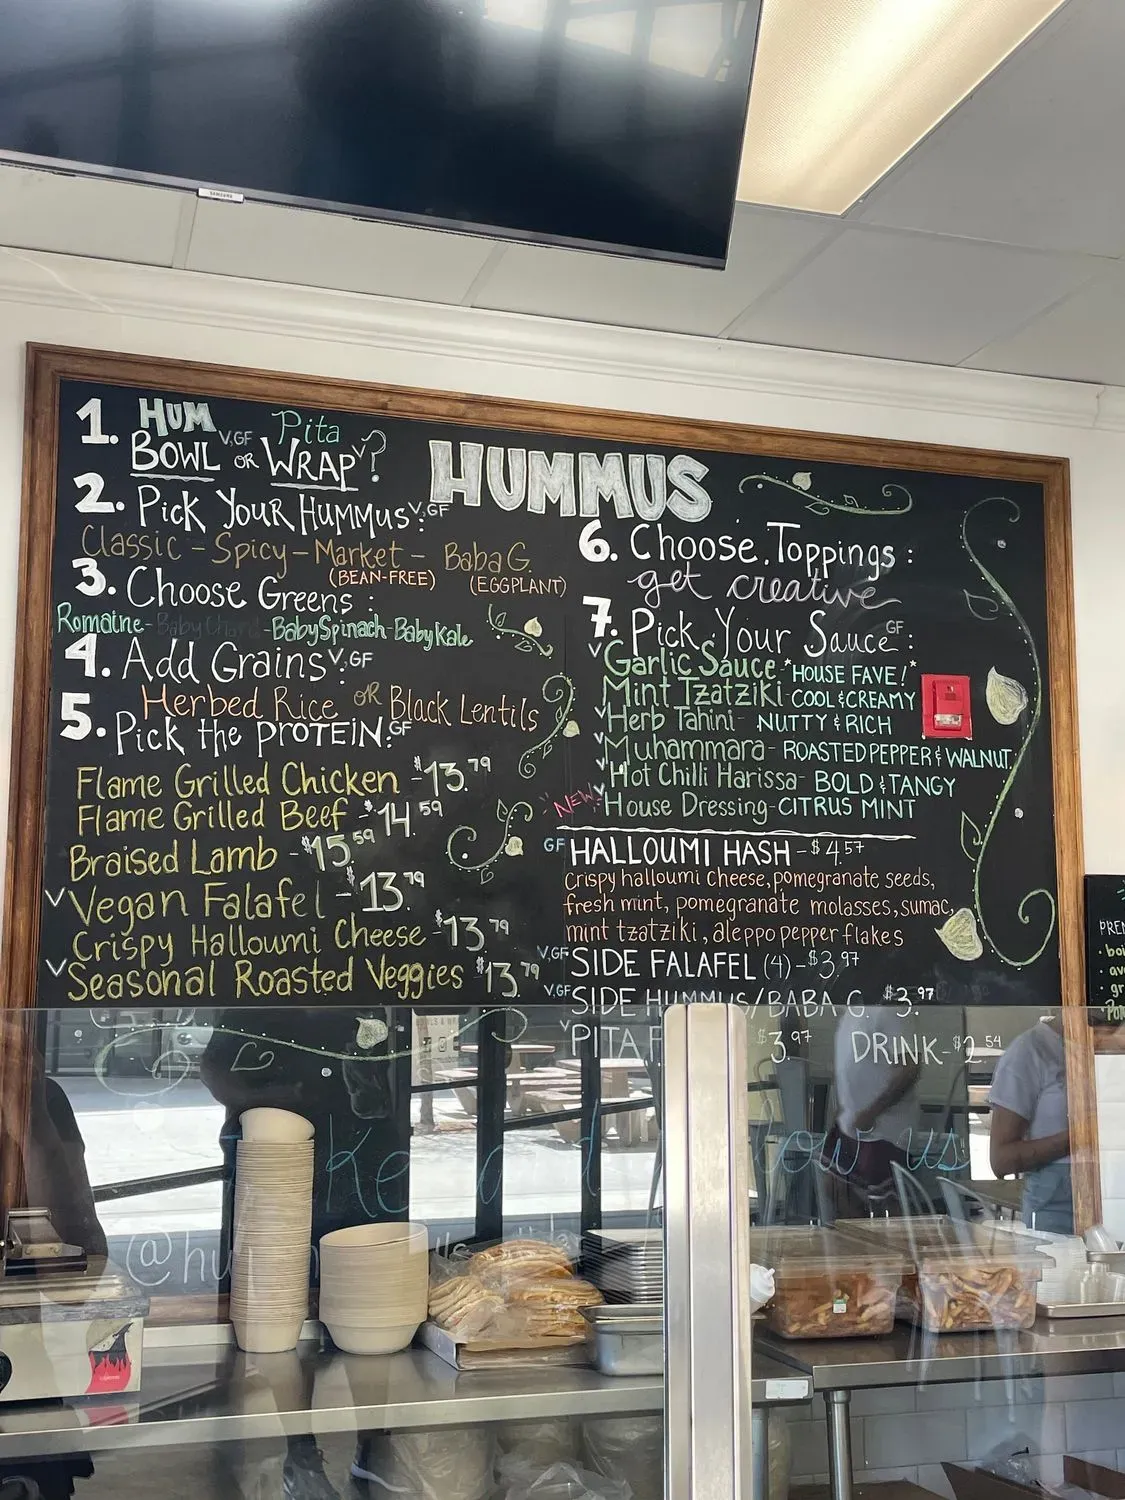 SAMSUNG
1. HUM BOWL V,GF OR Pita WRAP V?
2. Pick Your Hummus V,GF:
Classic - Spicy - Market - Baba G.
(BEAN-FREE) (EGGPLANT)
3. Choose Greens:
Romaine - Baby Chard - Baby Spinach - Baby Kale
4. Add Grains V,GF
Herbed Rice OR Black Lentils
5. Pick the PROTEIN: GF
Flame Grilled Chicken - $13.79
Flame Grilled Beef - $14.59
Braised Lamb - $15.59
V Vegan Falafel - $13.79
Crispy Halloumi Cheese - $13.79
V Seasonal Roasted Veggies $13.79
HUMMUS
6. Choose Toppings:
get creative
7. Pick Your Sauce GF:
V Garlic Sauce *HOUSE FAVE!*
Mint Tzatziki - COOL & CREAMY
V Herb Tahini - NUTTY & RICH
V Muhammara - ROASTED PEPPER & WALNUT
V Hot Chilli Harissa - BOLD & TANGY
NEW! V House Dressing - CITRUS MINT
GF HALLOUMI HASH - $4.57
Crispy halloumi cheese, pomegranate seeds,
fresh mint, pomegranate molasses, sumac,
mint tzatziki, aleppo pepper flakes
V,GF SIDE FALAFEL (4) - $3.97
V,GF SIDE HUMMUS/BABA G. $3.97
V PITA $3.97 DRINK - $2.54
us
@hu